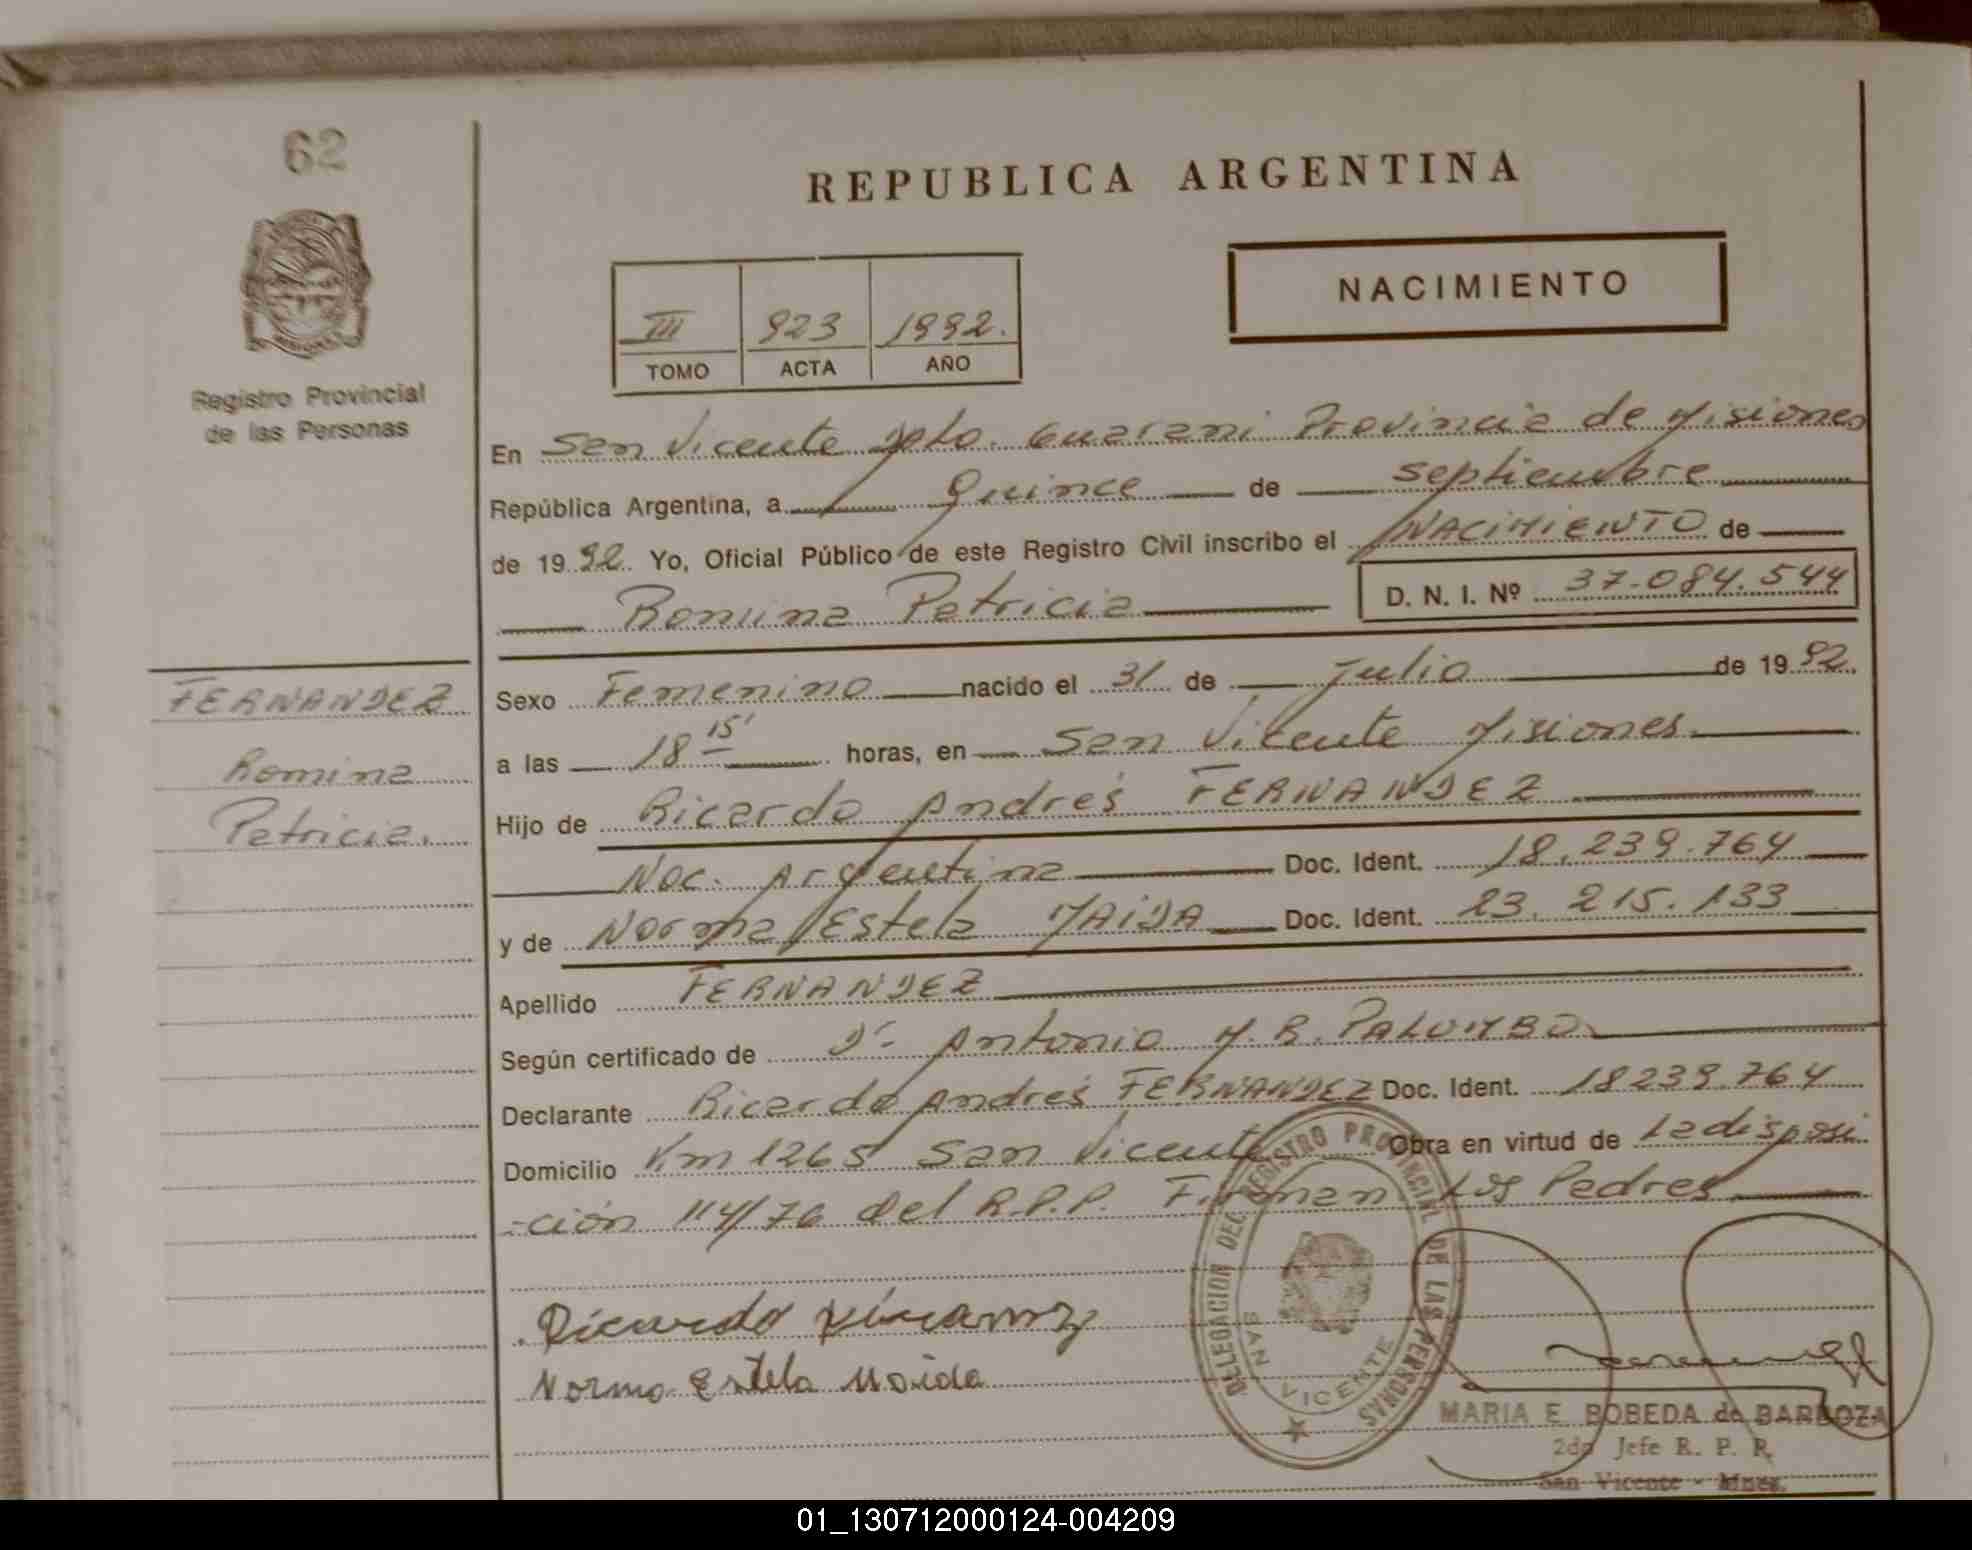 62
REPUBLICA ARGENTINA
NACIMIENTO
III 923 1992.
TOMO ACTA AÑO
Registro Provincial
de las Personas
En San Vicente Dpto. Guarani Provincia de Misiones
República Argentina, a Quince de septiembre
de 1992. Yo, Oficial Público de este Registro Civil inscribo el NACIMIENTO de
Romina Patricia
D. N. I. Nº 37.084.544
FERNANDEZ
Romina
Patricia.
Sexo Femenino nacido el 31 de Julio de 1992.
a las 18 15' horas, en San Vicente Misiones.
Hijo de Ricardo Andrés FERNANDEZ
Nac. Argentina Doc. Ident. 18.239.764
y de Norma Estela MAIDA Doc. Ident. 23.215.133
Apellido FERNANDEZ
Según certificado de Dr. Antonio M.R. PALUMBO.
Declarante Ricardo Andrés FERNANDEZ Doc. Ident. 18239.764
Domicilio Km 1265 San Vicente Obra en virtud de La disposi
-ción 114/76 del R.P.P. Firman Los Padres
Ricardo
Norma Estela Maida
DELEGACION DEL REGISTRO PROVINCIAL DE LAS PERSONAS
SAN VICENTE
MARIA E. BOBEDA de BARBOZA
2do Jefe R. P. P.
San Vicente - Mnes.
01_130712000124-004209